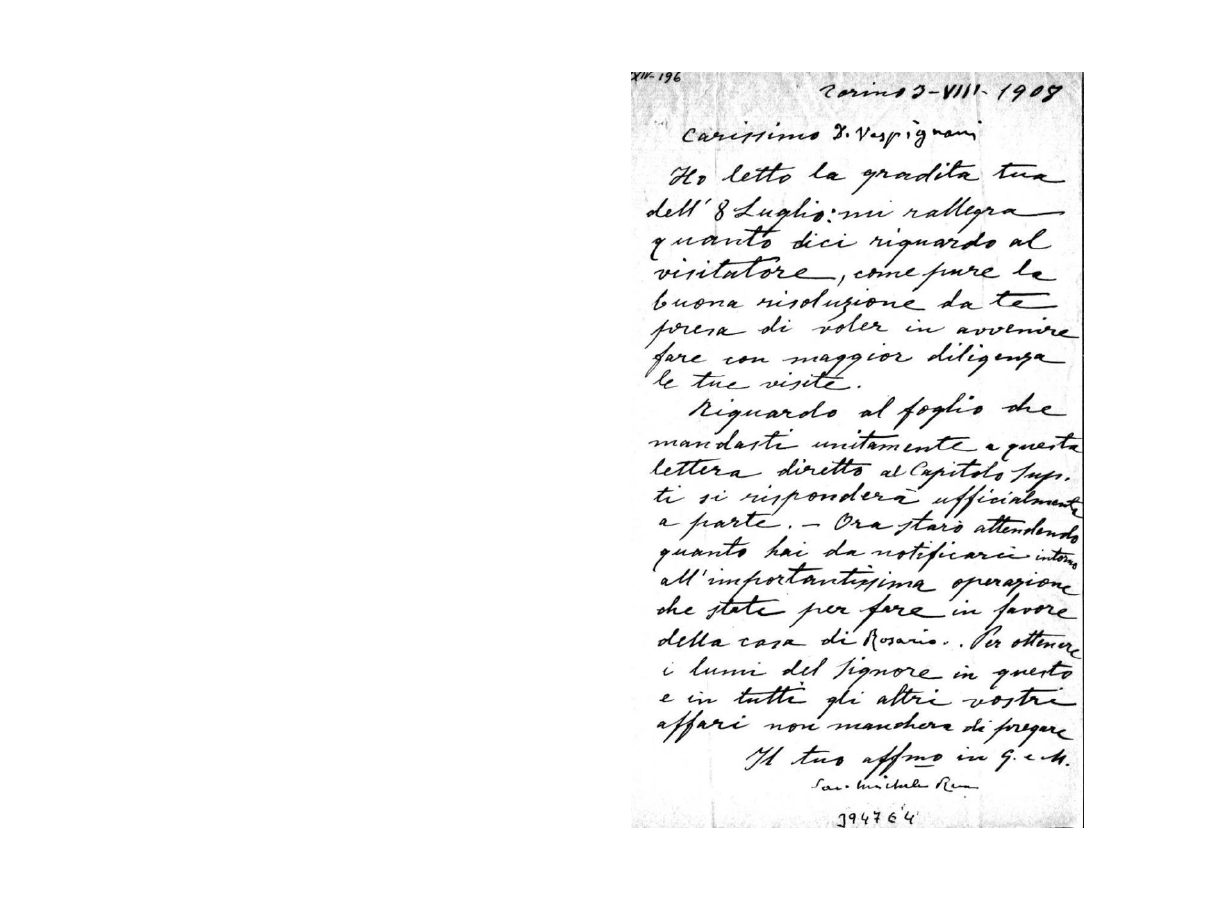 XIV-196
Torino 3-VIII-1908
Carissimo D. Vespignani
Ho letto la gradita tua
dell' 8 Luglio: mi rallegra
quanto dici riguardo al
visitatore, come pure la
buona risoluzione da te
presa di voler in avvenire
fare con maggior diligenza
le tue visite.
Riguardo al foglio che
mandasti unitamente a questa
lettera diretto al Capitolo Sup.
ti si risponderà ufficialmente
a parte. - Ora starò attendendo
quanto hai da notificarci intorno
all'importantissima operazione
che state per fare in favore
della casa di Rosario.. Per ottenere
i lumi del Signore in questo
e in tutti gli altri vostri
affari non mancherà di pregare
Il tuo affmo in G. e M.
Sac. Michele Rua